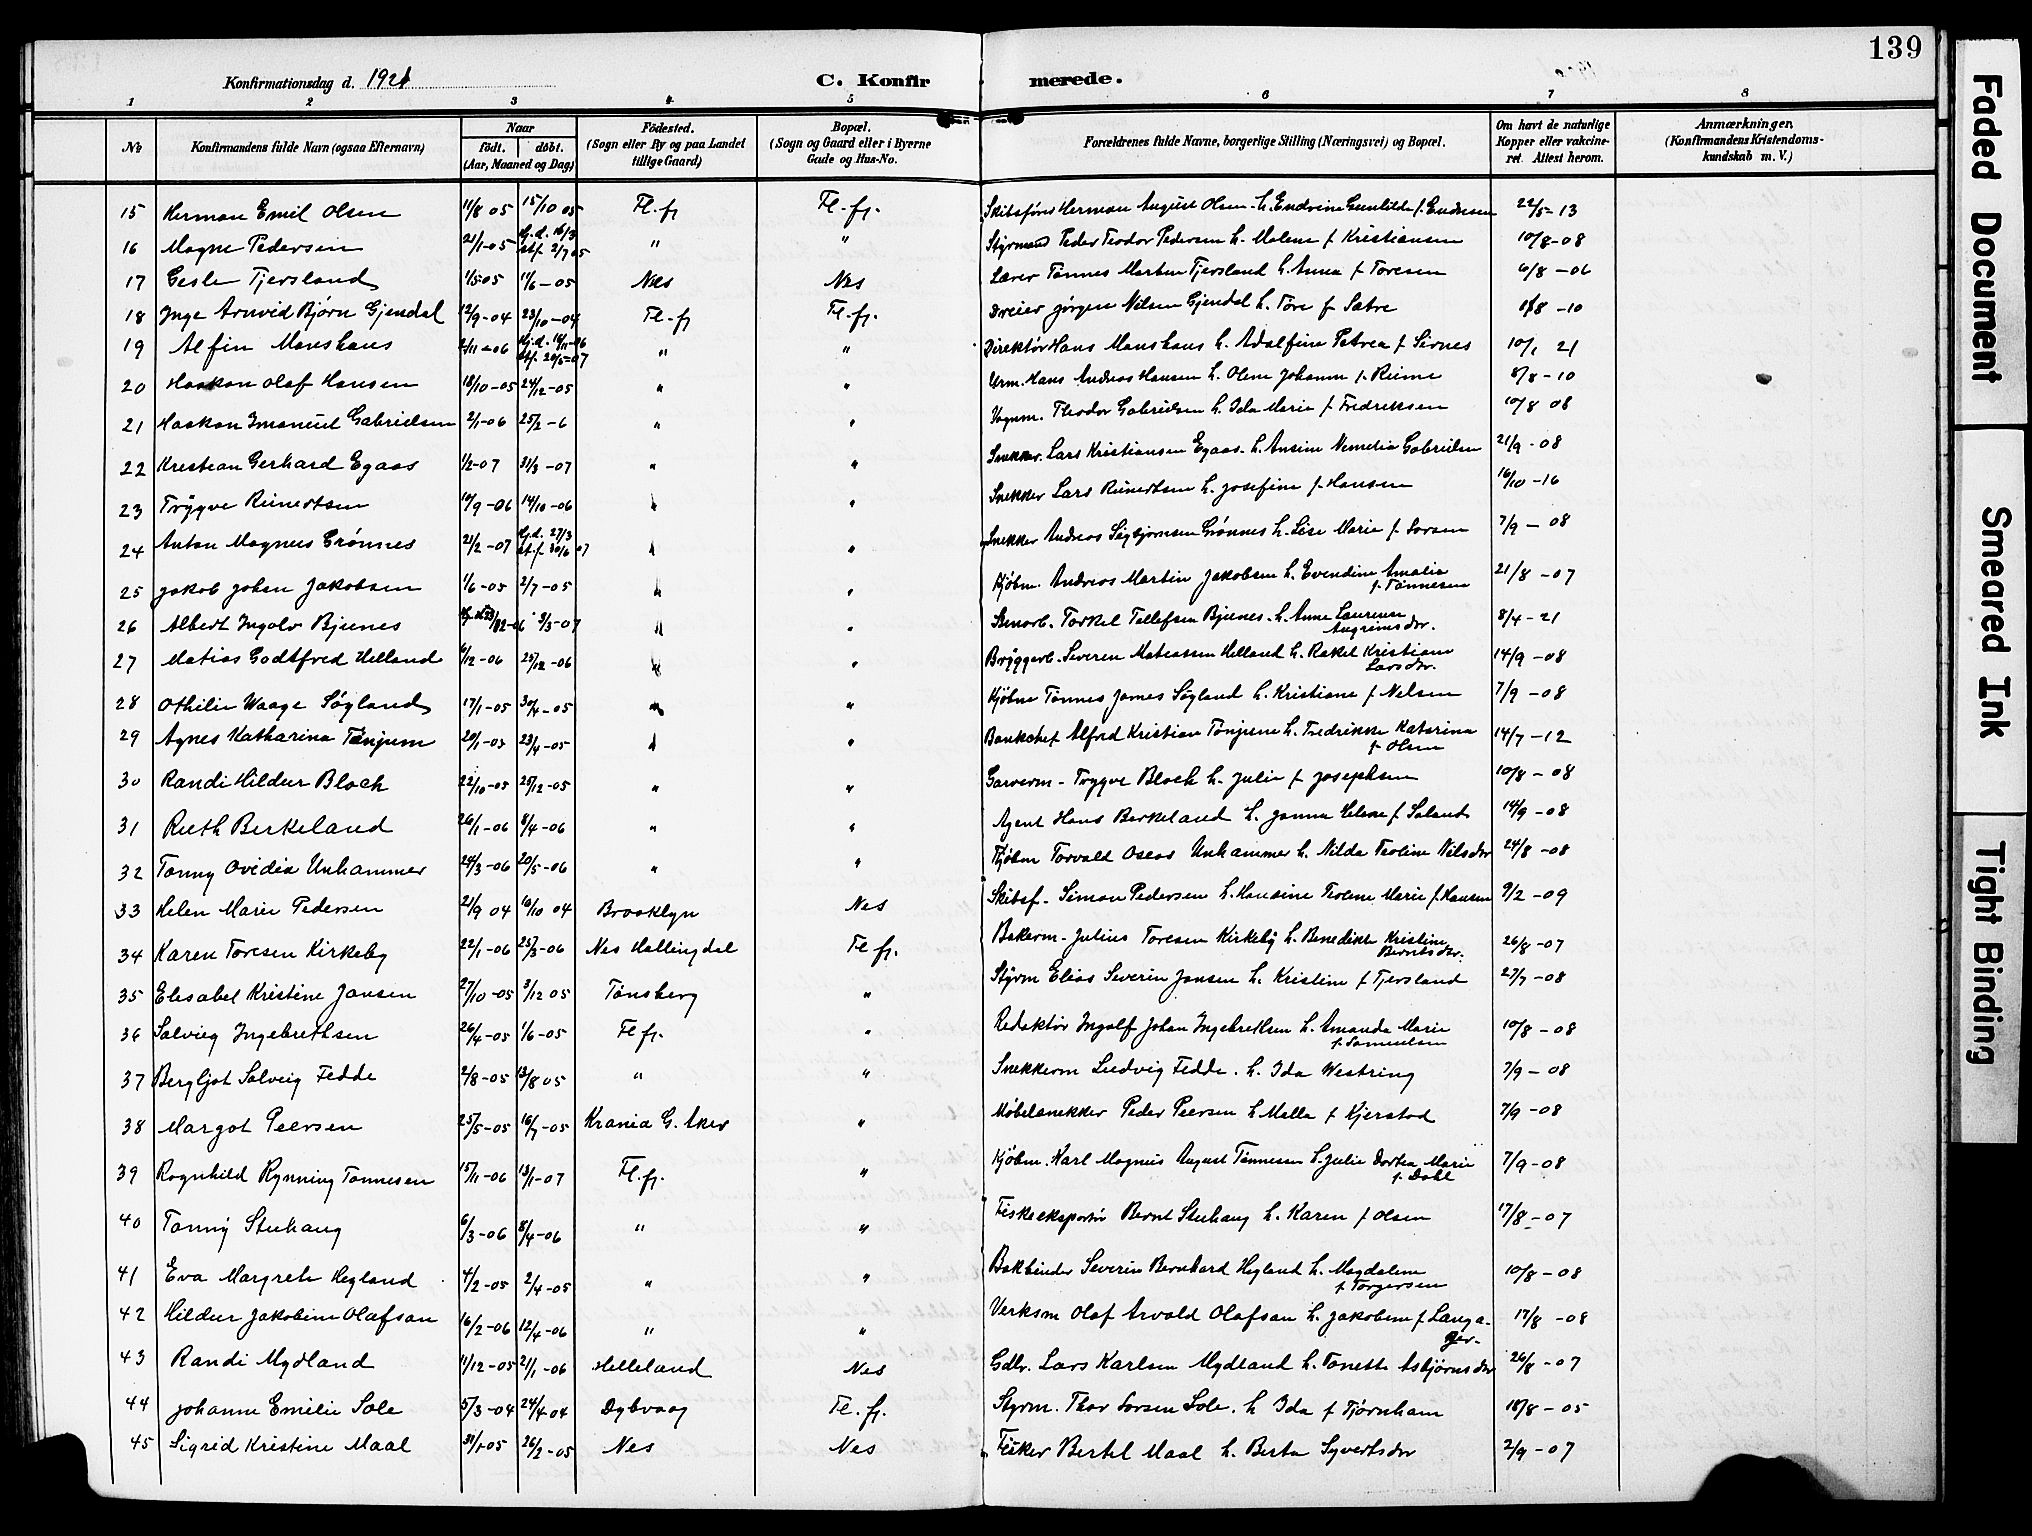 139
Konfirmationsdag d. 1921
C. Konfirmerede.
1 2 3 4 5 6 7 8
No
Konfirmandens fulde Navn (ogsaa Efternavn)
Naar
födt. döbt.
(Aar, Maaned og Dag)
Födested.
(Sogn eller By og paa Landet
tillige Gaard)
Bopæl.
(Sogn og Gaard eller i Byerne
Gade og Hus-No.
Forældrenes fulde Navne, borgerlige Stilling (Næringsvei) og Bopæl.
Om havt de naturlige
Kopper eller vakcine-
ret. Attest herom.
Anmærkninger
(Konfirmandens Kristendoms-
kundskab m. V.)
15 Herman Emil Olsen 11/8 05 15/10 05 Fl.-fj. Fl.-fj. Skibsfører Herman August Olsen h. Endrine Gunhilde f. Endresen 22/5-13
16 Magne Pedersen 21/1-05 Hj.d. 16/3 st.f. 2/7 05 " " Styrmand Peder Teodor Pedersen h. Malene f. Kristiansen 10/8-08
17 Gesle Tjersland 1/5 05 11/6-05 Nes Nes Lærer Tønnes Martin Tjersland h. Anna f. Toresen 6/8-06
18 Inge Arnvid Bjørn Gjendal 12/9-04 23/10-04 Fl-fj Fl.-fj. Dreier Jørgen Nilsen Gjendal h. Tore f. Satre /8-10
19 Alfin Monshaus 2/11-06 Hj.d. 14/11-06 st.f. 20/5-07 " " Direktør Hans Monshaus h. Adolfine Petrea f. Sirnes 10/1 21
20 Haakon Olaf Hansen 18/10-05 24/12-05 " " Urm. Hans Andreas Hansen h. Olene Johanne f. Reime 8/8-10
21 Haakon Imanuel Gabrielsen 2/1-06 25/2-6 " " Vognm. Theodor Gabrielsen h. Ida Marie f. Fredriksen 10/8 08
22 Kristian Gerhard Egaas 1/2-07 31/3-07 " " Snekker. Lars Kristiansen Egaas. h. Ansine Nemelia Gabrielsen 21/9-08
23 Trygve Reinertsen 10/9-06 14/10-06 " " Snekker Lars Reinertsen h. Josefine f. Hansen 16/10-16
24 Anton Magnus Grønnes 21/2-07 Hj.d. 27/3 st.f. 30/6 07 " " Snekker Andreas Sigbjørnsen Grønnes h. Lise Marie f. Larsen 7/9-08
25 Jakob Johan Jakobsen 1/6-05 2/7-05 " " Kjøbm. Andreas Martin Jakobsen h. Evendine Amalia f. Tønnesen 21/8-07
26 Albert Ingolv Bjunes 3/3-07 " " Torkel Tellefsen Bjunes. h. Anne Laurense Augrimsdtr. 8/4-21
27 Matias Godtfred Helland 6/12-06 25/12-06 " " Bryggearb. Severin Mateassen Helland h. Rakel Kristiane Larsdtr. 14/9-08
28 Othilie Waage Søyland 17/1-05 30/4-05 " " Kjøbm Tønnes James Søyland h. Kristiane f. Nelsen 7/9-08
29 Agnes Katharina Tønjum 20/1-05 23/4-05 " " Bankchef Alfred Kristian Tønjum h. Fredrikke Katarina f. Olsen 14/7-12
30 Randi Hildur Bloch 22/10-05 25/12-05 " " Garverm- Trygve Bloch h. Julie f. Josephsen 10/8-08
31 Ruth Berkeland 26/1-06 8/4-06 " " Agent Hans Berkeland h. Janna Helene f. Saland 14/9-08
32 Tonny Ovidia Unhammer 24/3-06 20/5-06 " " Kjøbm Torvald Oseas Unhammer h. Nilda Teoline Nilsdtr 24/8-08
33 Helen Marie Pedersen 21/9 04 16/10 04 Brooklyn Nes Skibsf- Simon Pedersen h. Hansine Marie f. Hansen 9/2-09
34 Karen Toresen Kirkeby 22/1-06 25/3-06 Nes Hallingdal Fl fj. Bakerm- Julius Toresen Kirkeby h. Benedikte Kristine Berntsdtr. 26/8-07
35 Elisabet Kristine Jansen 27/10-05 3/12 05 Tønsberg " Styrm Elias Severin Jansen h. Kristine f Tjersland 27/7-08
36 Solvieg Ingebrethsen 26/4-05 1/6-05 Fl fj. " Redaktør Ingolf Johan Ingebrethsen h. Amanda Marie f. Samuelsen 10/8-08
37 Bergljot Solveig Fedde 2/8-05 13/8 05 " " Snekkerm Ludvig Fedde. h. Ida Westring 7/9-08
38 Margot Peersen 25/5-05 16/7-05 Krania G. Aker " Møbelsnekker Peder Peersen h Malla f Kjerstad 7/9-08
39 Ragnhild Rynning Tønnesen 15/11-06 13/1-07 Fl. fj. " Kjøbm. Karl Magnus August Tønnesen h. Julie Dortea Marie f. Dahl 7/9-08
40 Tonny Stuhaug 6/3-06 8/4-06 " " Fiskeeksportør Bernt Stuhaug h. Karen f Olsen 17/8-07
41 Eva Margrete Hegland 4/2-05 2/4-05 " " Bokbinder Severin Bernhard Hegland h. Magdalene f. Torgersen 10/8-08
42 Hildur Jakobine Olafsan 16/2-06 12/4-06 " " Verksm Olaf Arvald Olafsan h. Jakobine f. Langager- 17/8-08
43 Randi Mydland 11/12-05 21/1-06 Helleland Nes Gdbr. Lars Karlsen Mydland h. Tonette Asbjørnsdtr 26/8-07
44 Johanne Emilie Sole 5/3-04 24/4 04 Dybvaag Fl.-fj. Styrm. Thor Larsen Sole. h Ida f Tjørnham 18/8-05
45 Sigrid Kristine Maal 31/1-05 26/2-05 Nes Nes Fisker Bertel Maal h. Berta Syvertsdtr 2/9-07
Faded Document
Smeared Ink
Tight Binding